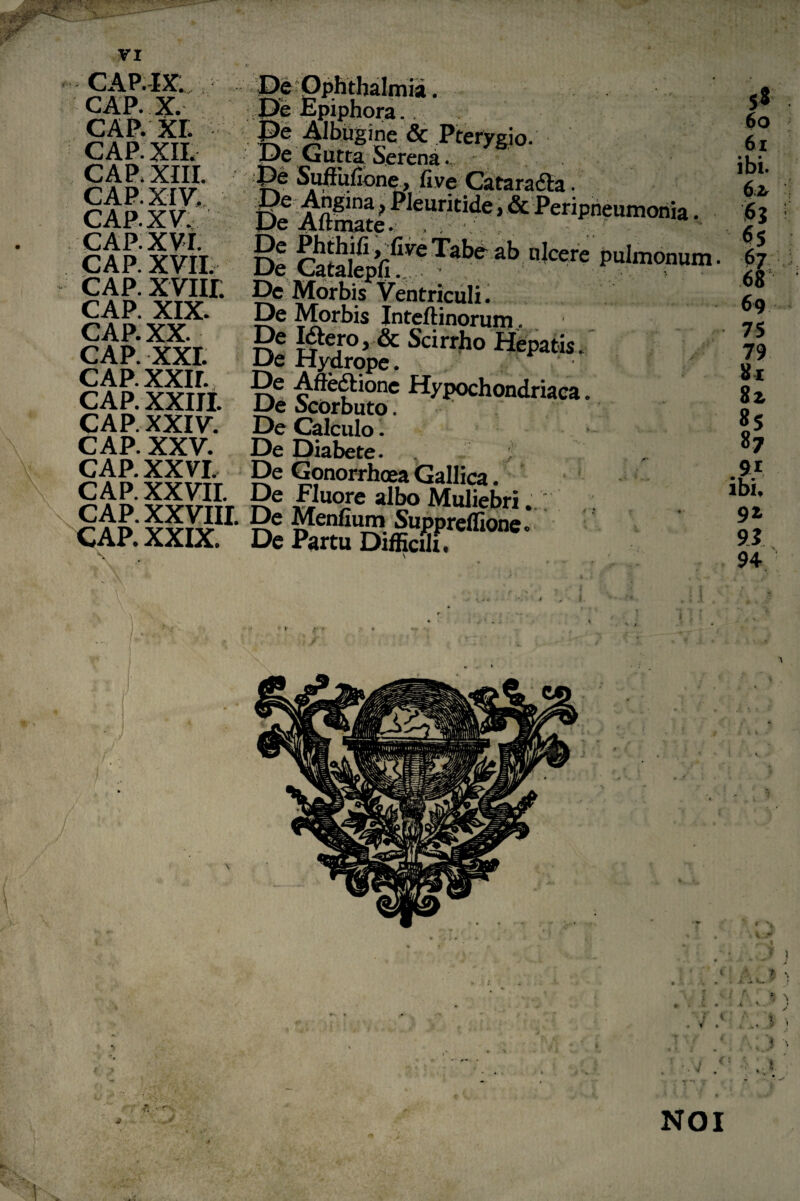 VI
CAP. IX. De Ophthalmia. 58
CAP. X. De Epiphora. 60
CAP. XI. De Albugine & Pterygio. 61
CAP. XII. De Gutta Serena. ibi.
CAP. XIII. De Suffuſione, ſive Cataracta. 62
CAP. XIV. De Angina, Pleuritide, & Peripneumonia. 63
CAP. XV. De Aſtmate. 65
CAP. XVI. De Phthiſi, ſive Tabe ab ulcere pulmonum. 67
CAP. XVII. De Catalepſi. 68
CAP. XVIII. De Morbis Ventriculi. 69
CAP. XIX. De Morbis Inteſtinorum. 75
CAP. XX. De Ictero, & Scirrho Hepatis. 79
CAP. XXI. De Hydrope. 81
CAP. XXII. De Affectione Hypochondriaca. 82
CAP. XXIII. De Scorbuto. 85
CAP. XXIV. De Calculo. 87
CAP. XXV. De Diabete. 91
CAP. XXVI. De Gonorrhœa Gallica. ibi.
CAP. XXVII. De Fluore albo Muliebri. 92
CAP. XXVIII. De Menſium Suppreſſione. 93
CAP. XXIX. De Partu Difficili. 94
NOI